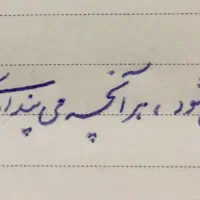 شود، هر آنچه می پندا